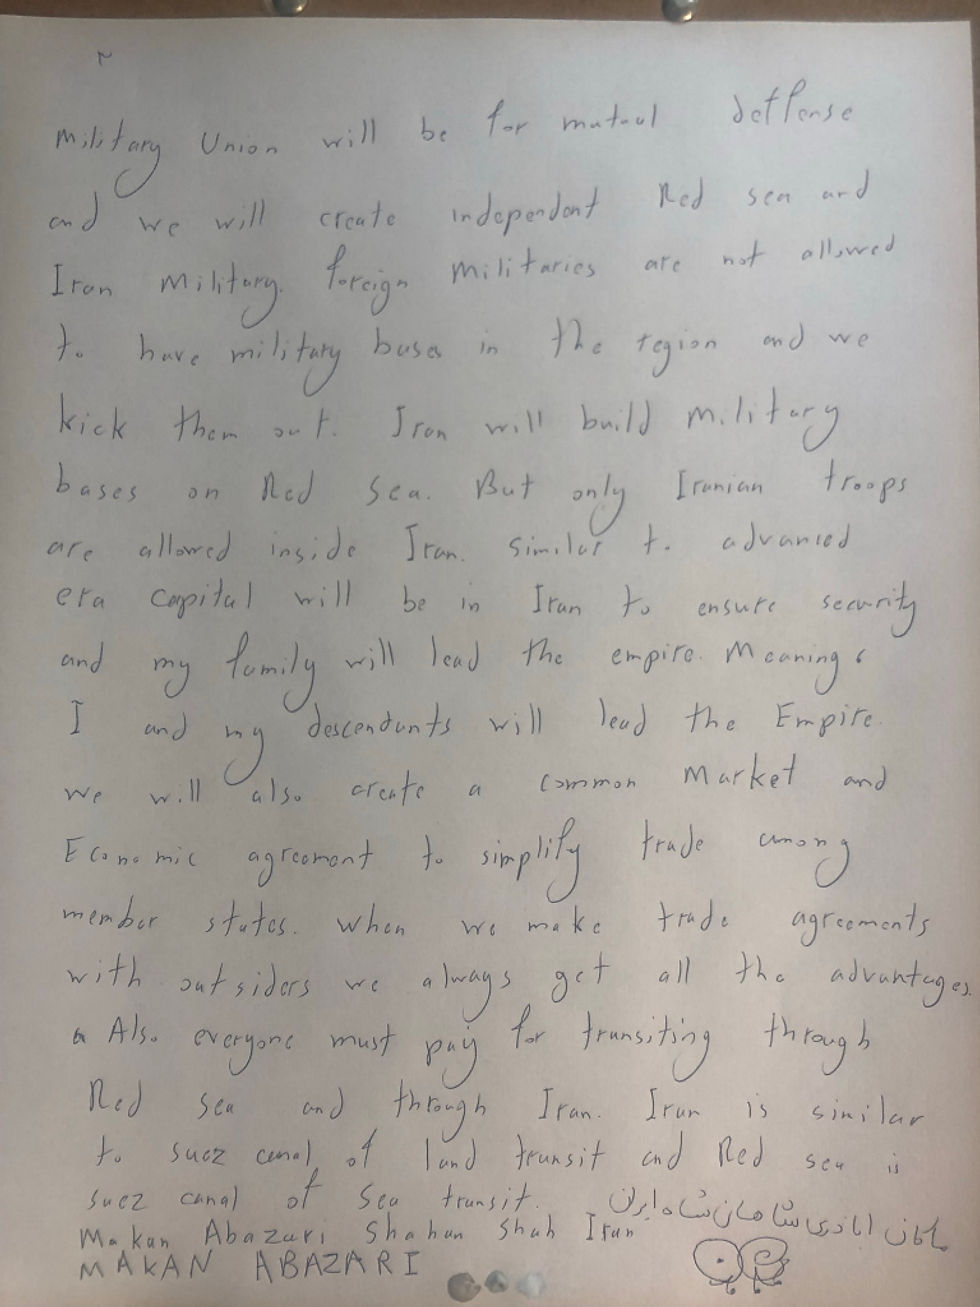 ۲
Military Union will be for mutual deffense
and we will create independent Red sea and
Iran Military. foreign militaries are not allowed
to have military bases in the region and we
kick them out. Iran will build military
bases on Red Sea. But only Iranian troops
are allowed inside Iran. similar to advanced
era capital will be in Iran to ensure security
and my family will lead the empire. Meaning :
I and my descendants will lead the Empire.
we will also create a common Market and
Economic agreement to simplify trade among
member states. when we make trade agreements
with outsiders we always get all the advantages.
Also everyone must pay for transiting through
Red sea and through Iran. Iran is similar
to suez canal of land transit and Red sea is
suez canal of sea transit.
ماکان اباذری شاهان شاه ایران
Makan Abazari Shahan Shah Iran
MAKAN ABAZARI